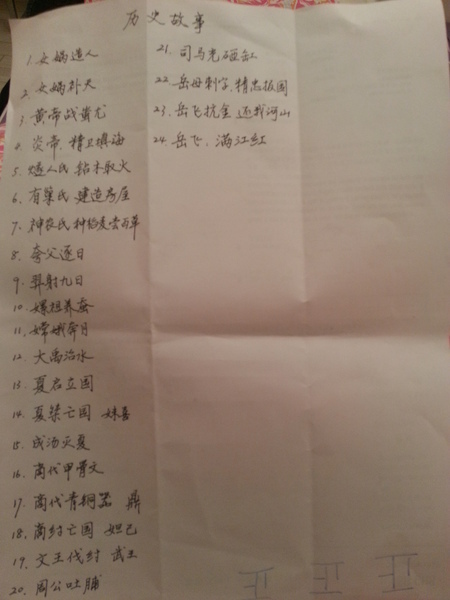 历史故事
1. 女娲造人
2. 女娲补天
3. 黄帝战蚩尤
4. 炎帝. 精卫填海
5. 燧人氏 钻木取火
6. 有巢氏 建造房屋
7. 神农氏 种稻麦尝百草
8. 夸父逐日
9. 羿射九日
10. 嫘祖养蚕
11. 嫦娥奔月
12. 大禹治水
13. 夏启立国
14. 夏桀亡国 妹喜
15. 成汤灭夏
16. 商代甲骨文
17. 商代青铜器 鼎
18. 商纣亡国 妲己
19. 文王伐纣 武王
20. 周公吐脯
21. 司马光砸缸
22. 岳母刺字. 精忠报国
23. 岳飞抗金 还我河山
24. 岳飞. 满江红
正 正 正